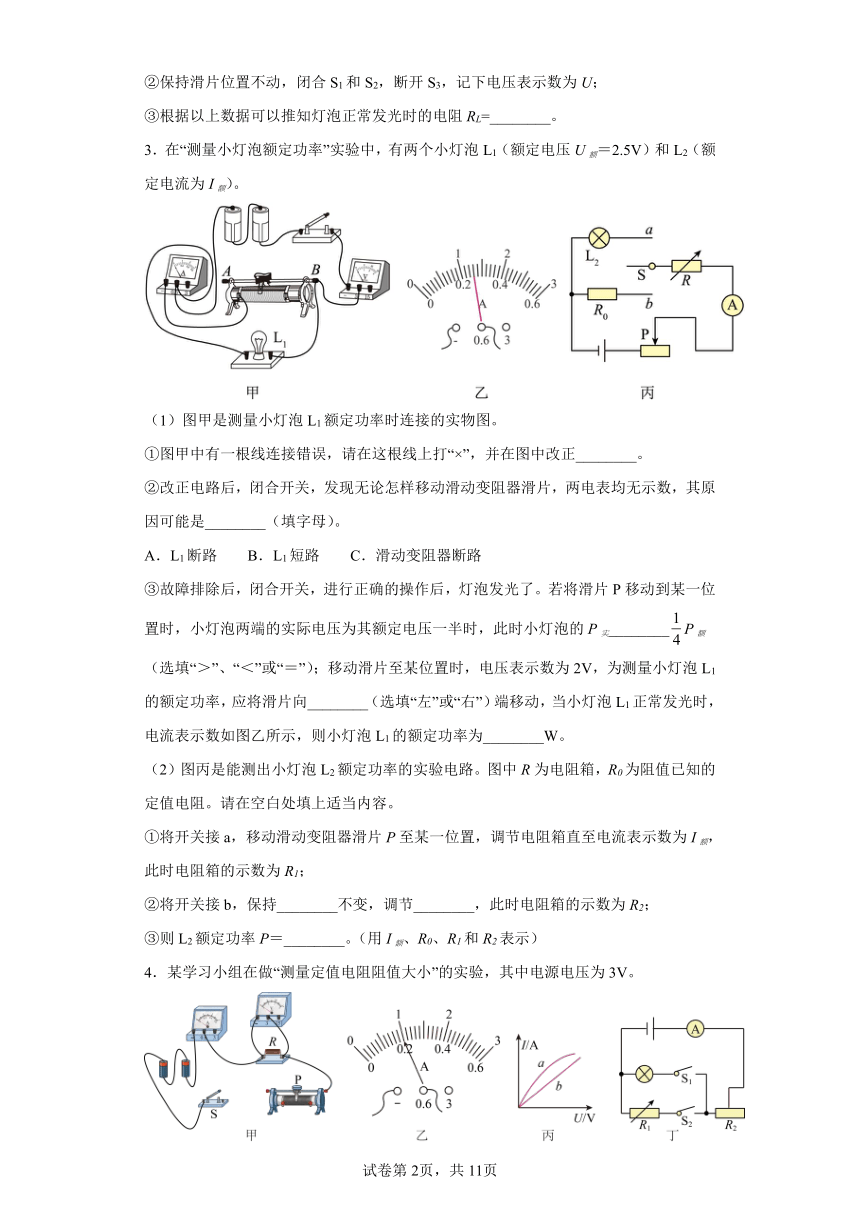 ②保持滑片位置不动，闭合S1和S2，断开S3，记下电压表示数为U；
③根据以上数据可以推知灯泡正常发光时的电阻RL=________。
3．在“测量小灯泡额定功率”实验中，有两个小灯泡L1（额定电压U额＝2.5V）和L2（额
定电流为I额）。
A B L1
甲
0 1 2 3
0 0.2 0.4 0.6
A
- 0.6 3
乙
a L2 S R R0 b A P
丙
（1）图甲是测量小灯泡L1额定功率时连接的实物图。
①图甲中有一根线连接错误，请在这根线上打“×”，并在图中改正________。
②改正电路后，闭合开关，发现无论怎样移动滑动变阻器滑片，两电表均无示数，其原
因可能是________（填字母）。
A．L1断路 B．L1短路 C．滑动变阻器断路
③故障排除后，闭合开关，进行正确的操作后，灯泡发光了。若将滑片P移动到某一位
置时，小灯泡两端的实际电压为其额定电压一半时，此时小灯泡的P实________1/4P额
（选填“＞”、“＜”或“＝”）；移动滑片至某位置时，电压表示数为2V，为测量小灯泡L1
的额定功率，应将滑片向________（选填“左”或“右”）端移动，当小灯泡L1正常发光时，
电流表示数如图乙所示，则小灯泡L1的额定功率为________W。
（2）图丙是能测出小灯泡L2额定功率的实验电路。图中R为电阻箱，R0为阻值已知的
定值电阻。请在空白处填上适当内容。
①将开关接a，移动滑动变阻器滑片P至某一位置，调节电阻箱直至电流表示数为I额，
此时电阻箱的示数为R1；
②将开关接b，保持________不变，调节________，此时电阻箱的示数为R2；
③则L2额定功率P＝________。（用I额、R0、R1和R2表示）
4．某学习小组在做“测量定值电阻阻值大小”的实验，其中电源电压为3V。
R P S
甲
0 1 2 3
0 0.2 0.4 0.6
A
- 0.6 3
乙
I/A a b U/V
丙
A S1 R1 S2 R2
丁
试卷第2页，共11页